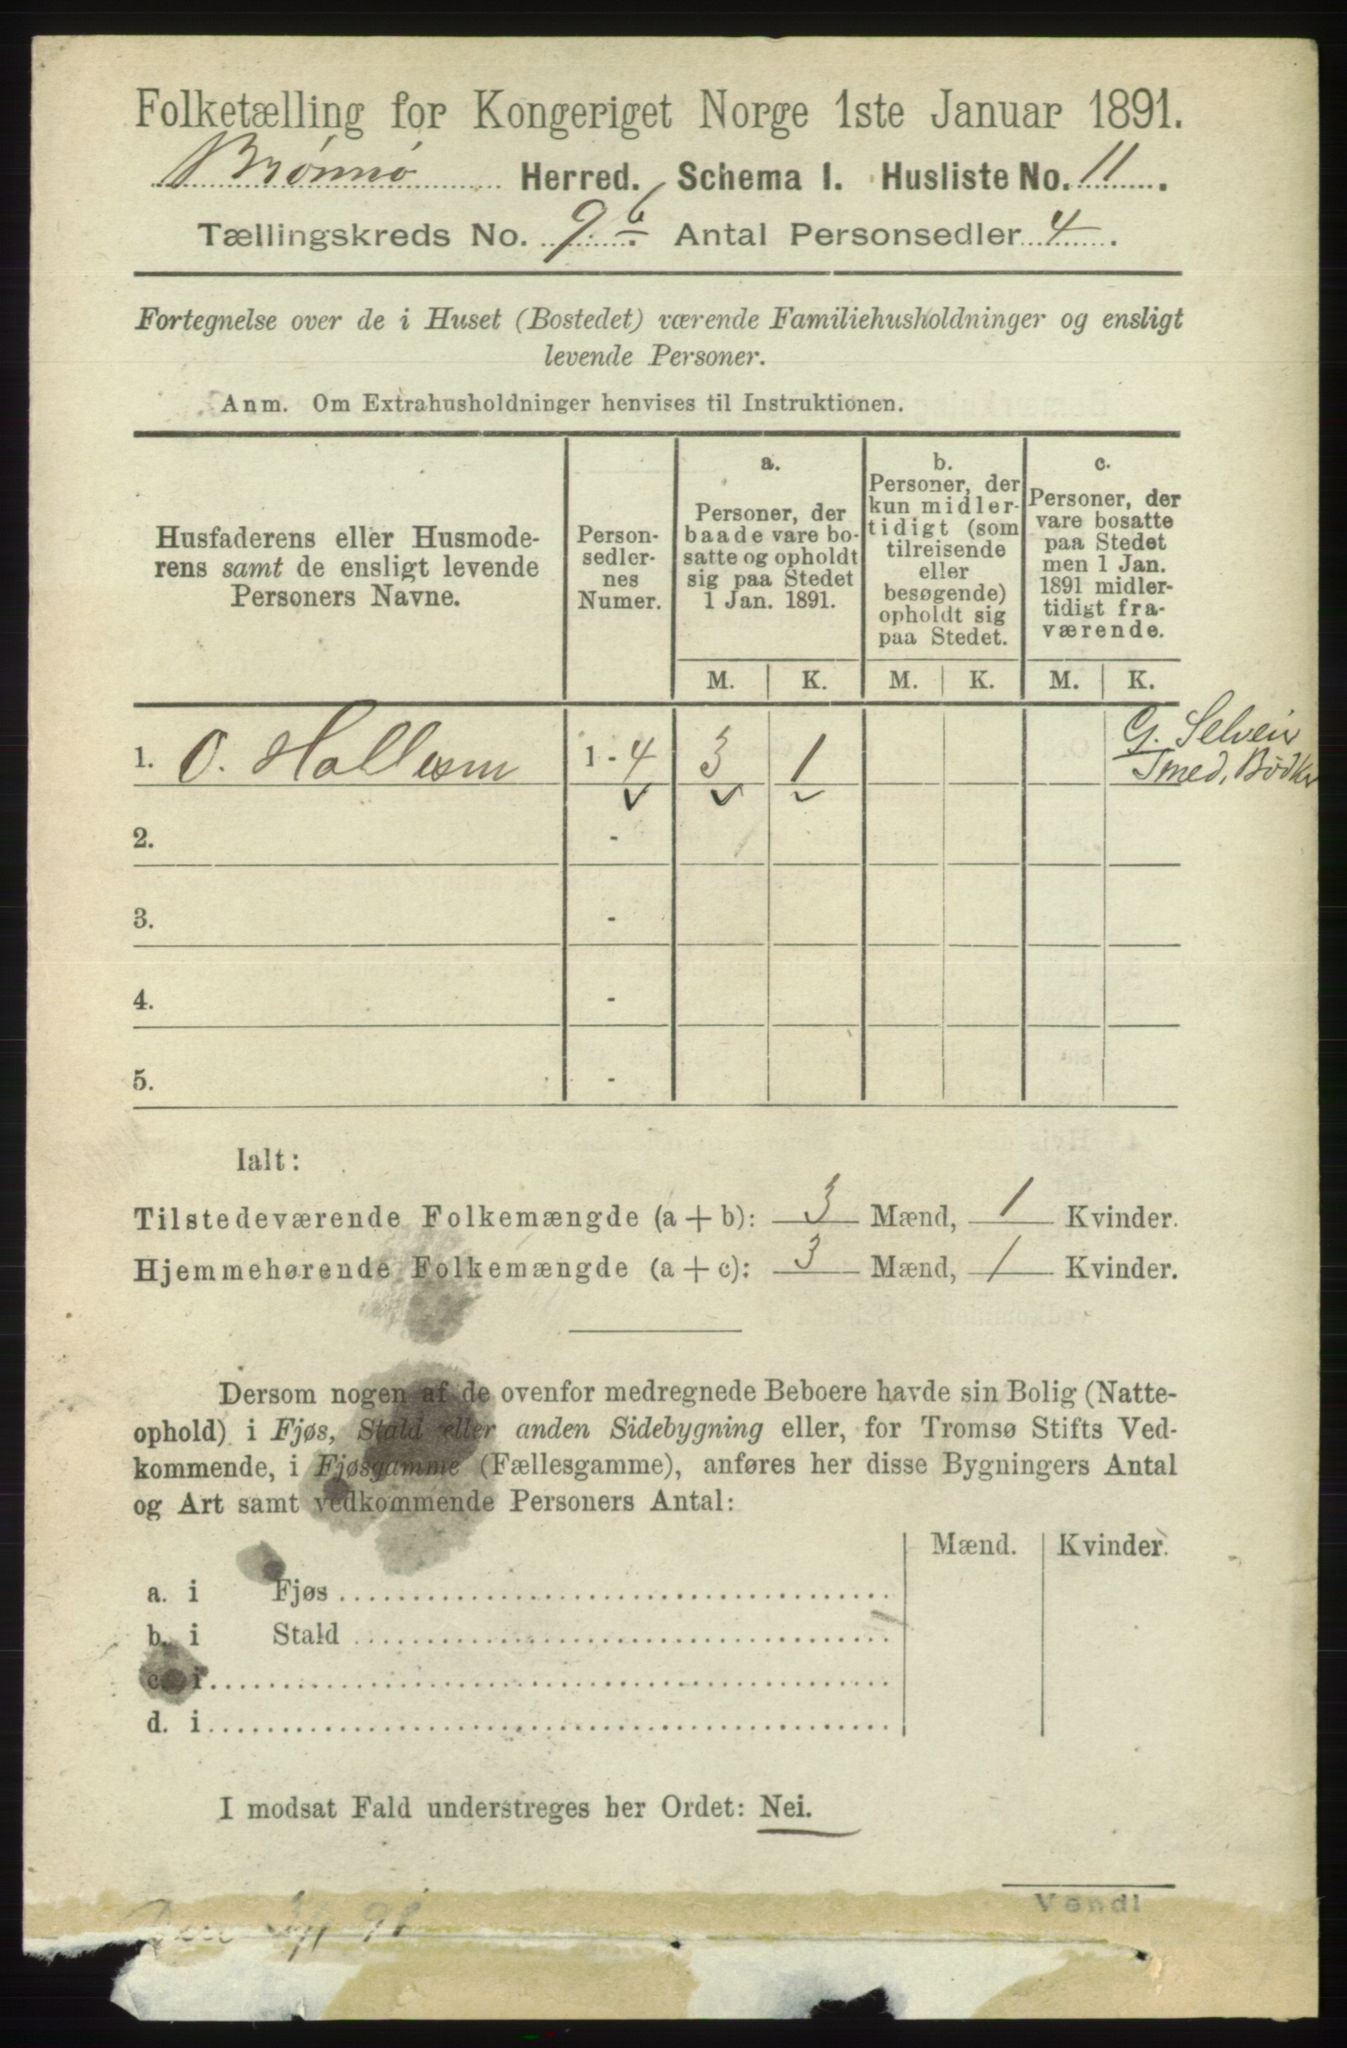 Folketælling for Kongeriget Norge 1ste Januar 1891.
Brønnø Herred. Schema I. Husliste No. 11.
Tællingskreds No. 9 b. Antal Personsedler 4.
Fortegnelse over de i Huset (Bostedet) værende Familiehusholdninger og ensligt
levende Personer.
Anm. Om Extrahusholdninger henvises til Instruktionen.
Husfaderens eller Husmode-
rens samt de ensligt levende
Personers Navne.
Person-
sedler-
nes
Numer.
a.
Personer, der
baade vare bo-
satte og opholdt
sig paa Stedet
1 Jan. 1891.
b.
Personer, der
kun midler-
tidigt (som
tilreisende
eller
besøgende)
opholdt sig
paa Stedet.
c.
Personer, der
vare bosatte
paa Stedet
men 1 Jan.
1891 midler-
tidigt fra-
værende.
M. K. M. K. M. K.
1. O. 1 - 4 3 1
G.
Smed, Bødker
2. -
3. -
4. -
5. -
Ialt:
Tilstedeværende Folkemængde (a + b): 3 Mænd, 1 Kvinder.
Hjemmehørende Folkemængde (a + c): 3 Mænd, 1 Kvinder.
Dersom nogen af de ovenfor medregnede Beboere havde sin Bolig (Natte-
ophold) i Fjøs, Stald eller anden Sidebygning eller, for Tromsø Stifts Ved-
kommende, i Fjøsgamme (Fællesgamme), anføres her disse Bygningers Antal
og Art samt vedkommende Personers Antal:
Mænd. Kvinder.
a. i Fjøs
b. i Stald
c. i
d. i
I modsat Fald understreges her Ordet: Nei.
Vend!